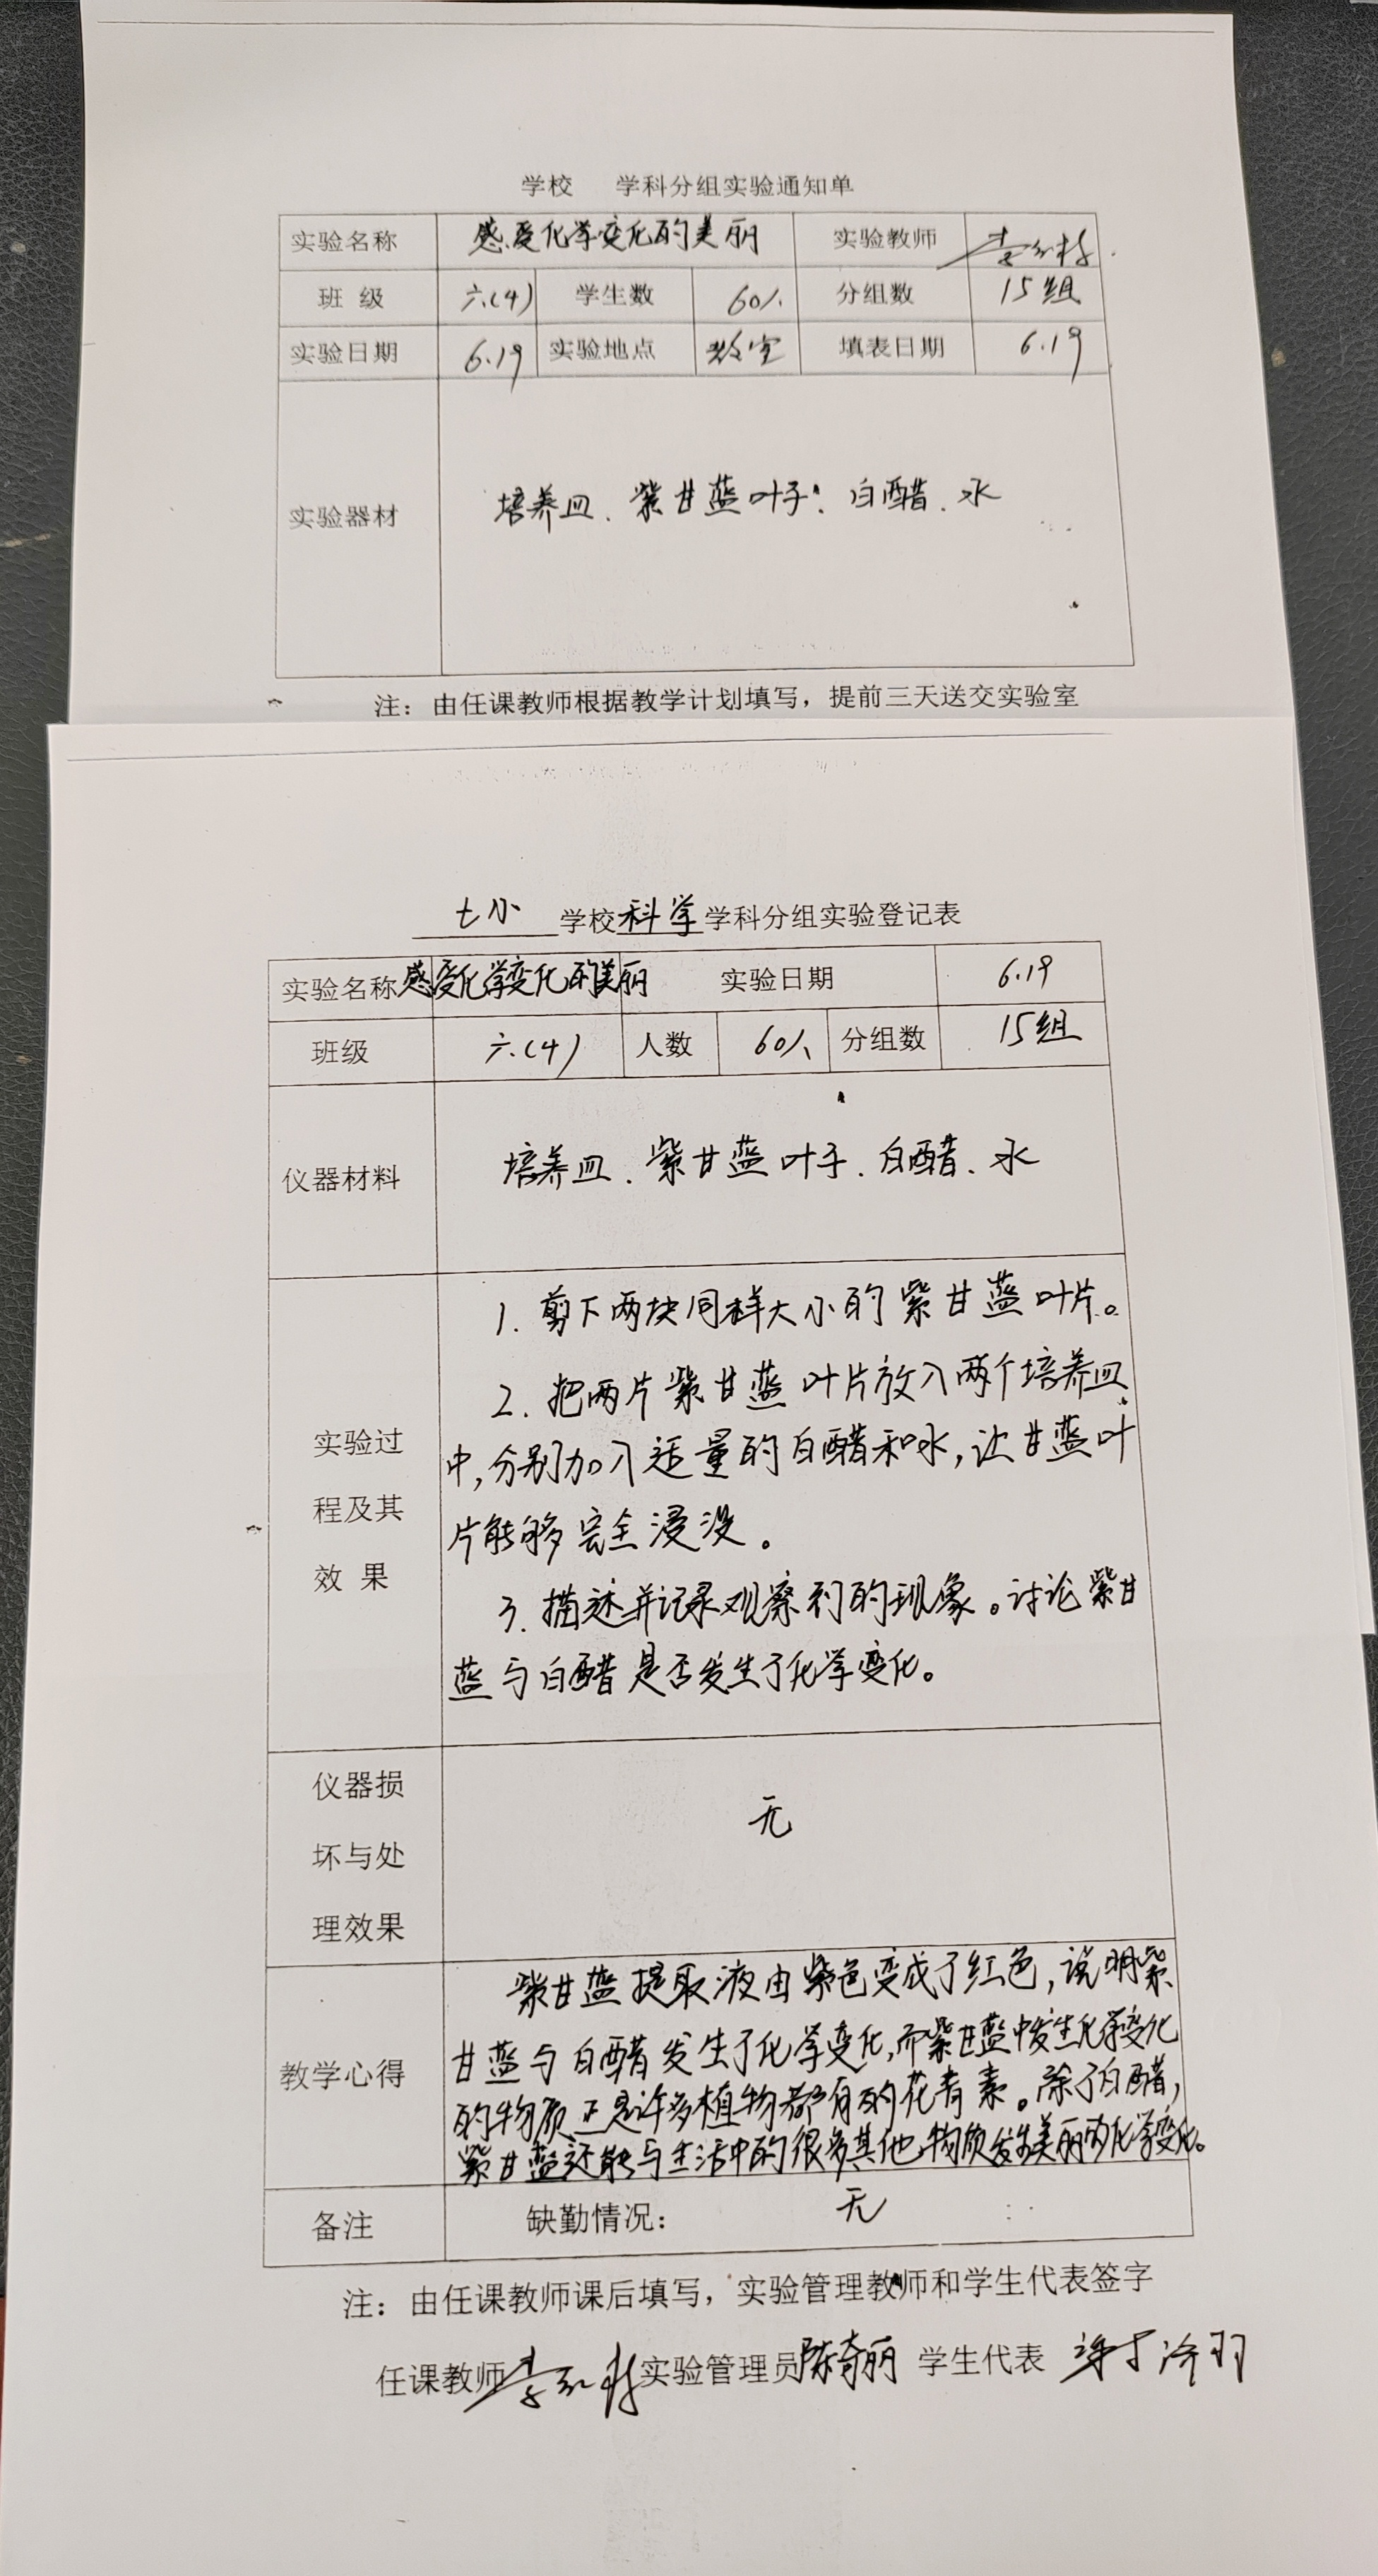 学校 学科分组实验通知单
实验名称 感受化学变化的美丽 实验教师
班 级 六.(4) 学生数 60人 分组数 15组
实验日期 6.19 实验地点 教室 填表日期 6.19
实验器材 培养皿、紫甘蓝叶子、白醋、水
注：由任课教师根据教学计划填写，提前三天送交实验室
七小 学校科学学科分组实验登记表
实验名称 感受化学变化的美丽 实验日期 6.19
班级 六.(4) 人数 60人 分组数 15组
仪器材料 培养皿、紫甘蓝叶子、白醋、水
实验过
程及其
效 果
1. 剪下两块同样大小的紫甘蓝叶片。
2. 把两片紫甘蓝叶片放入两个培养皿
中,分别加入适量的白醋和水,让甘蓝叶
片能够完全浸没。
3. 描述并记录观察到的现象。讨论紫甘
蓝与白醋是否发生了化学变化。
仪器损
坏与处
理效果
无
教学心得
紫甘蓝提取液由紫色变成了红色,说明紫
甘蓝与白醋发生了化学变化,而紫甘蓝中发生化学变化
的物质正是许多植物都有的花青素。除了白醋,
紫甘蓝还能与生活中的很多其他物质发生美丽的化学变化。
备注 缺勤情况： 无
注：由任课教师课后填写，实验管理教师和学生代表签字
任课教师 实验管理员陈奇丽 学生代表